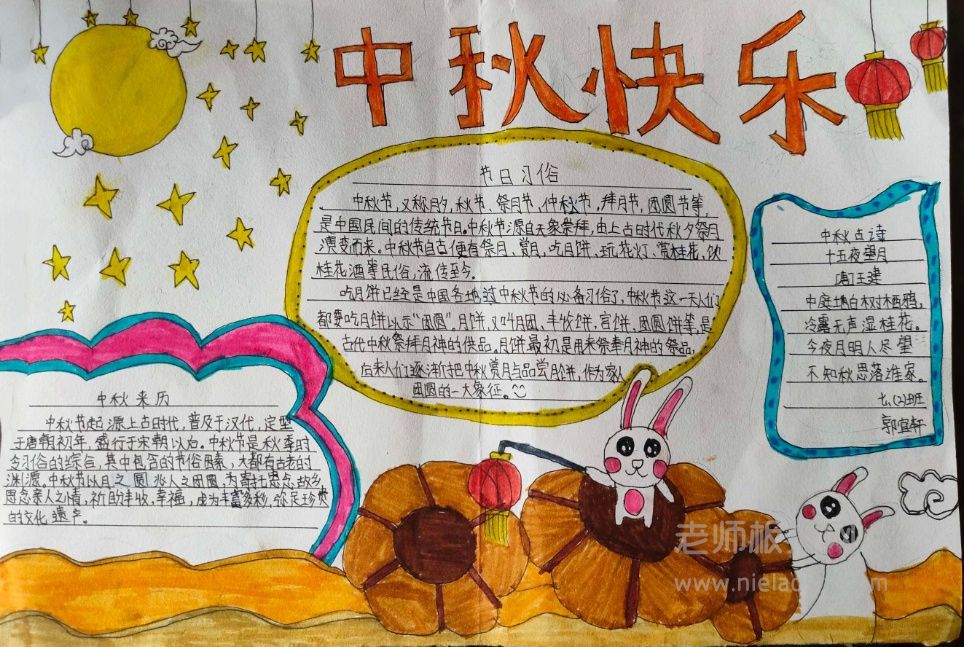 中秋快乐
节日习俗
中秋节,又称月夕,秋节、祭月节、仲秋节,拜月节,团圆节等,
是中国民间的传统节日。中秋节源自天象祭拜,由上古时代秋夕祭月
演变而来。中秋节自古便有祭月、赏月、吃月饼、玩花灯、赏桂花、饮
桂花酒等民俗,流传至今。
吃月饼已经是中国各地过中秋节的必备习俗了,中秋节这一天人们
都要吃月饼以示"团圆",月饼,又叫月团、丰收饼,宫饼,团圆饼等,是
古代中秋祭拜月神的供品,月饼最初是用来祭奉月神的祭品,
后来人们逐渐把中秋赏月与品尝月饼,作为家人
团圆的一大象征。
中秋古诗
十五夜望月
唐王建
中庭地白树栖鸦,
冷露无声湿桂花。
今夜月明人尽望
不知秋思落谁家。
七.(2)班
郭宜轩
中秋来历
中秋节起源上古时代,普及于汉代,定型
于唐朝初年,盛行于宋朝以后。中秋节是秋季时
令习俗的综合,其中包含的节俗因素,大都有古老的
渊源,中秋节以月之圆兆人之团圆,为寄托思念故乡
思念亲人之情,祈盼丰收、幸福,成为丰富多彩,弥足珍贵
的文化遗产。
老师板
www.nielao
m